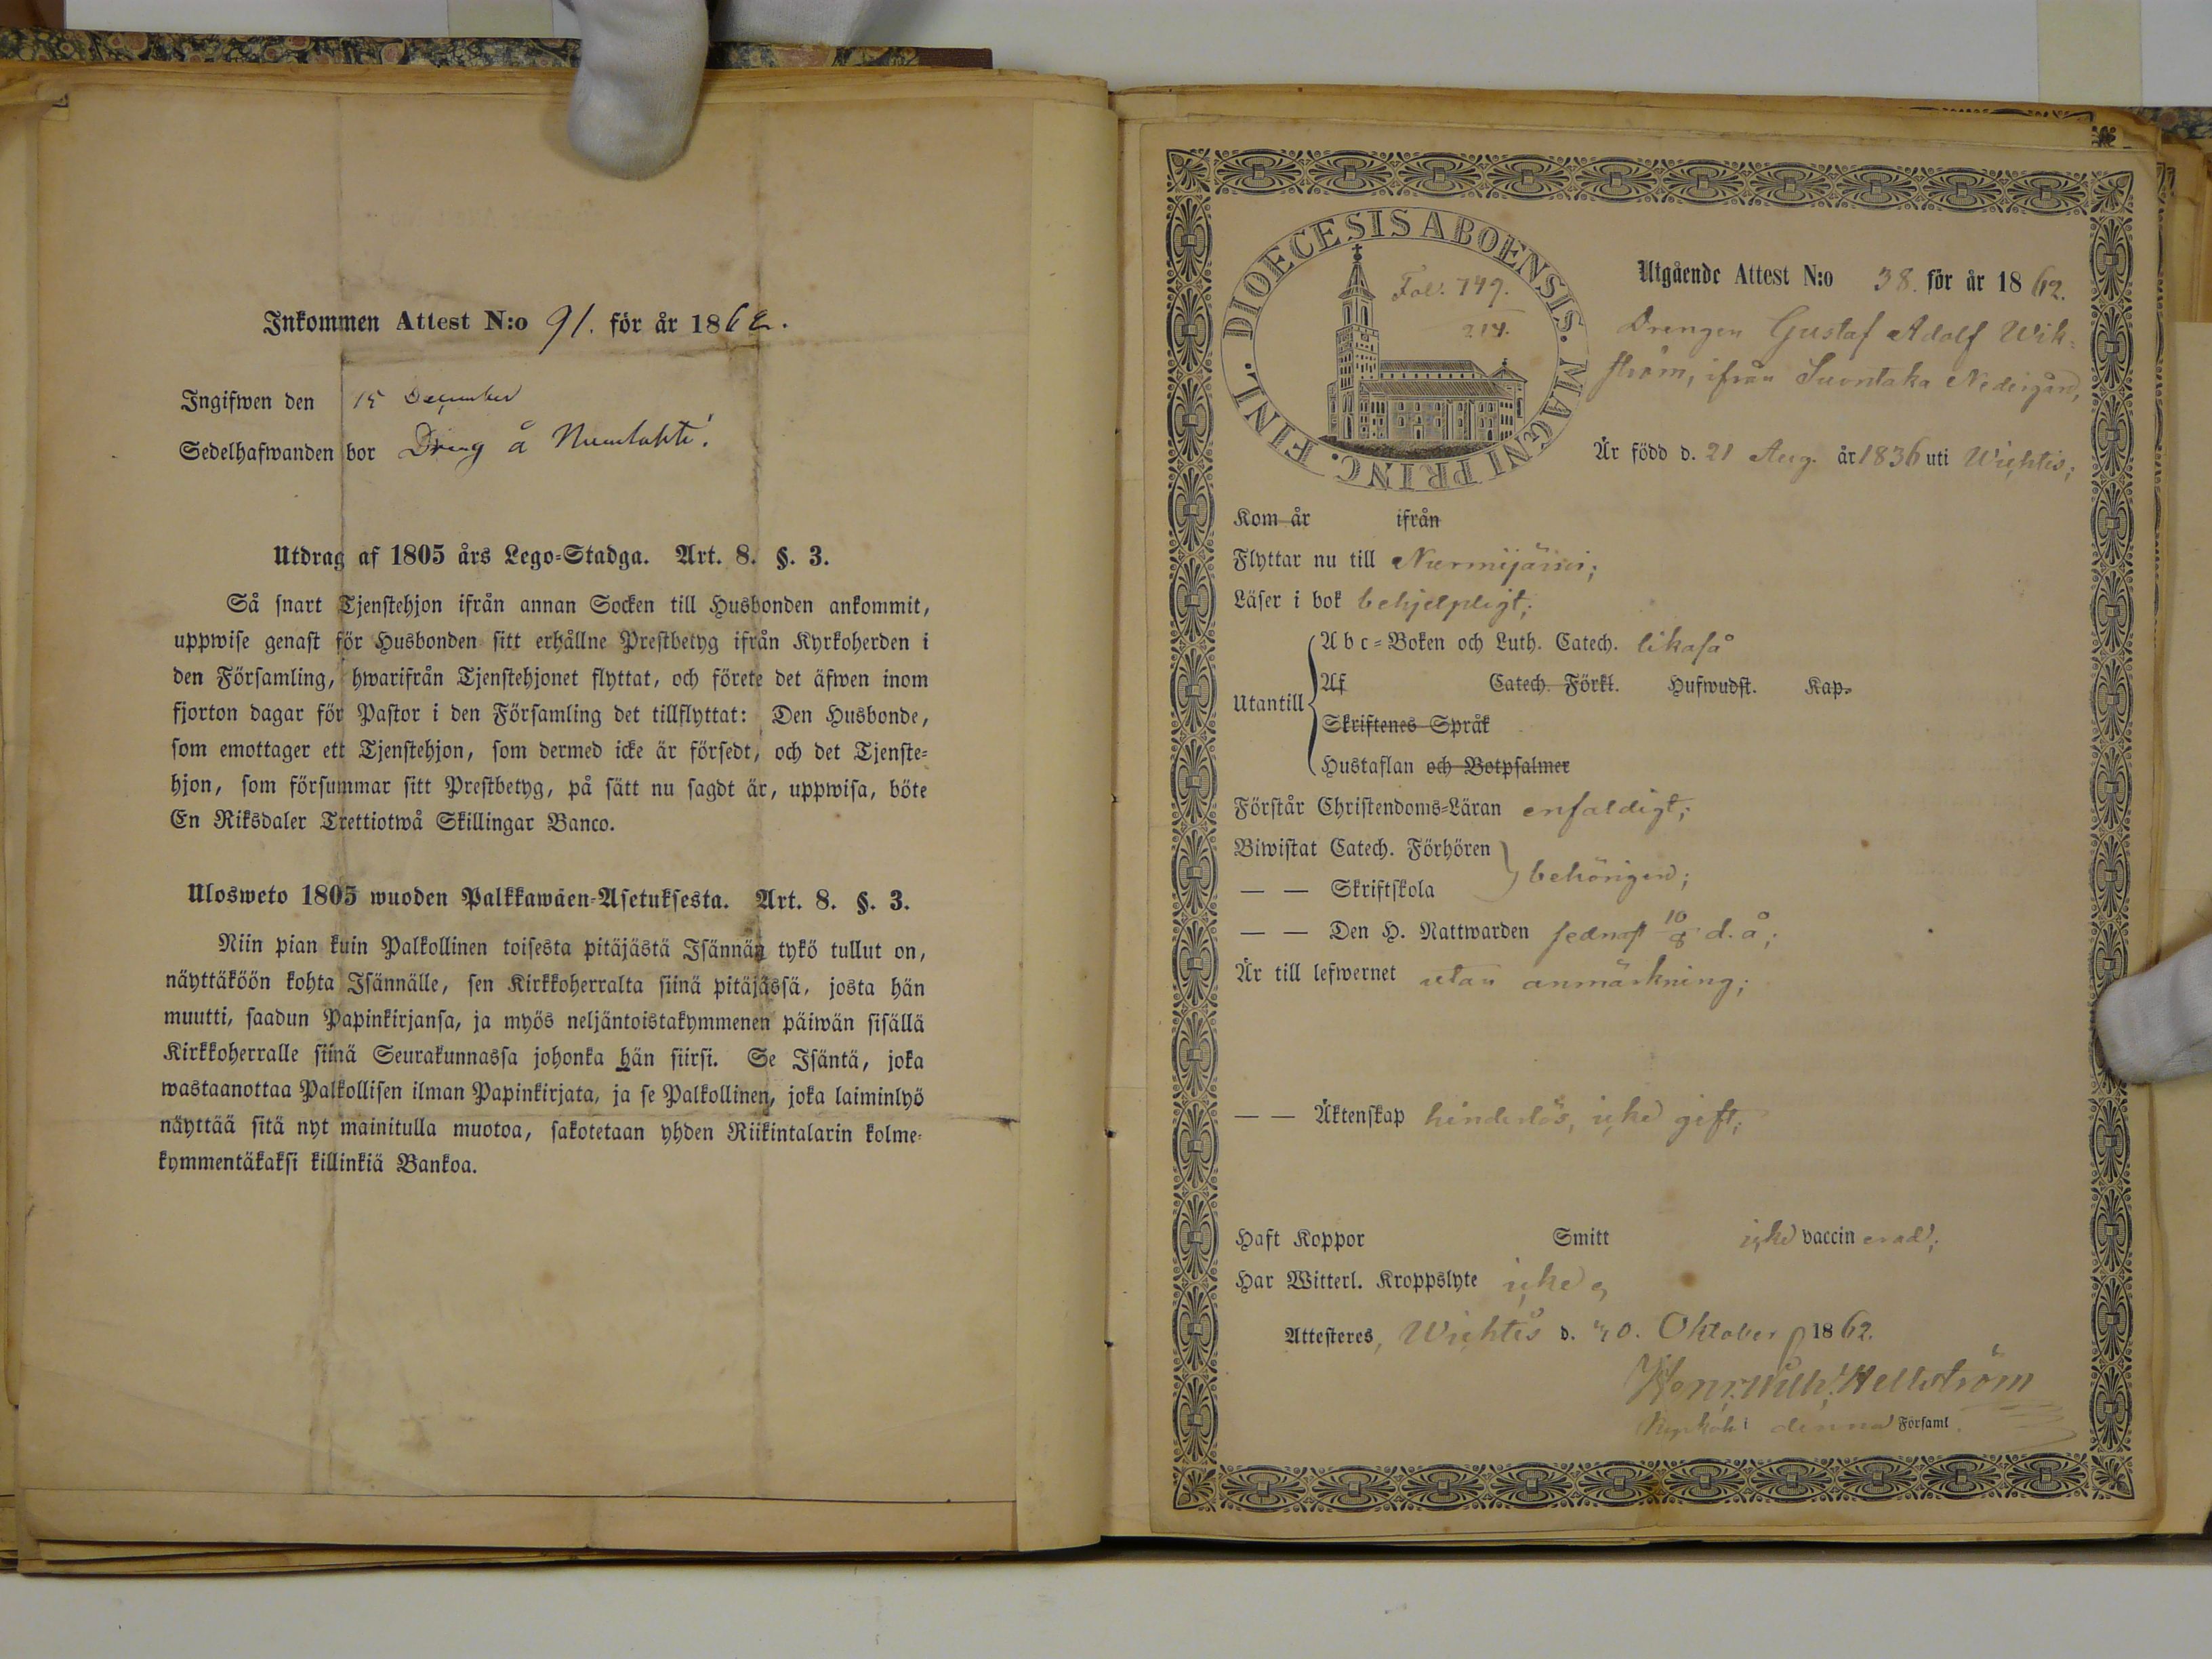 Inkommen Attest N:o 91. för år 1862.
Ingifwen den 15 December
Sedelhafwanden bor Dreng å Numlahti.
Utdrag af 1805 års Lego-Stadga. Art. 8. §. 3.
Så snart Tjenstehjon ifrån annan Socken till Husbonden ankommit,
uppwise genast för Husbonden sitt erhållne Prestbetyg ifrån Kyrkoherden i
den Församling, hwarifrån Tjenstehjonet flyttat, och förete det äfwen inom
fjorton dagar för Pastor i den Församling det tillflyttat: Den Husbonde,
som emottager ett Tjenstehjon, som dermed icke är försedt, och det Tjenste-
hjon, som försummar sitt Prestbetyg, på sätt nu sagdt är, uppwisa, böte
En Riksdaler Trettiotwå Skillingar Banco.
Ulosweto 1805 wuoden Palkkawäen-Asetuksesta. Art. 8. §. 3.
Niin pian kuin Palkollinen toisesta pitäjästä Isännän tykö tullut on,
näyttäköön kohta Isännälle, sen Kirkkoherralta siinä pitäjässä, josta hän
muutti, saadun Papinkirjansa, ja myös neljäntoistakymmenen päiwän sisällä
Kirkkoherralle siinä Seurakunnassa johonka hän siirsi. Se Isäntä, joka
wastaanottaa Palkollisen ilman Papinkirjata, ja se Palkollinen, joka laiminlyö
näyttää sitä nyt mainitulla muotoa, sakotetaan yhden Riikintalarin kolme-
kymmentäkaksi killinkiä Bankoa.
DIOECESIS ABOENSIS. MAGNI PRINC. FINL.
Fol. 749.
214.
Utgående Attest N:o 38. för år 1862.
Drengen Gustaf Adolf Wik-
ström, ifrån Suontaka Nedergård,
Är född d. 21 Aug. år 1836 uti Wichtis;
Kom år ifrån
Flyttar nu till Nurmijärvi;
Läser i bok behjelpligt;
Abc-Boken och Luth. Catech. likaså
Utantill
Af Catech. Förkl. Hufwudst. Kap.
Skriftenes Språk
Hustaflan och Botpsalmer
Förstår Christendoms-Läran enfaldigt;
Biwistat Catech. Förhören
— — Skriftskola behörigen;
— — Den H. Nattwarden sednast 10/8 d. å;
Är till lefwernet utan anmärkning;
— — Äktenskap hinderlös, icke gift;
Haft Koppor Smitt icke vaccinerad;
Har Witterl. Kroppslyte icke
Attesteres, Wichtis d. Oktober 1862.
Henr. Wilh. Hellström
Kyrkoh i denna Församl.